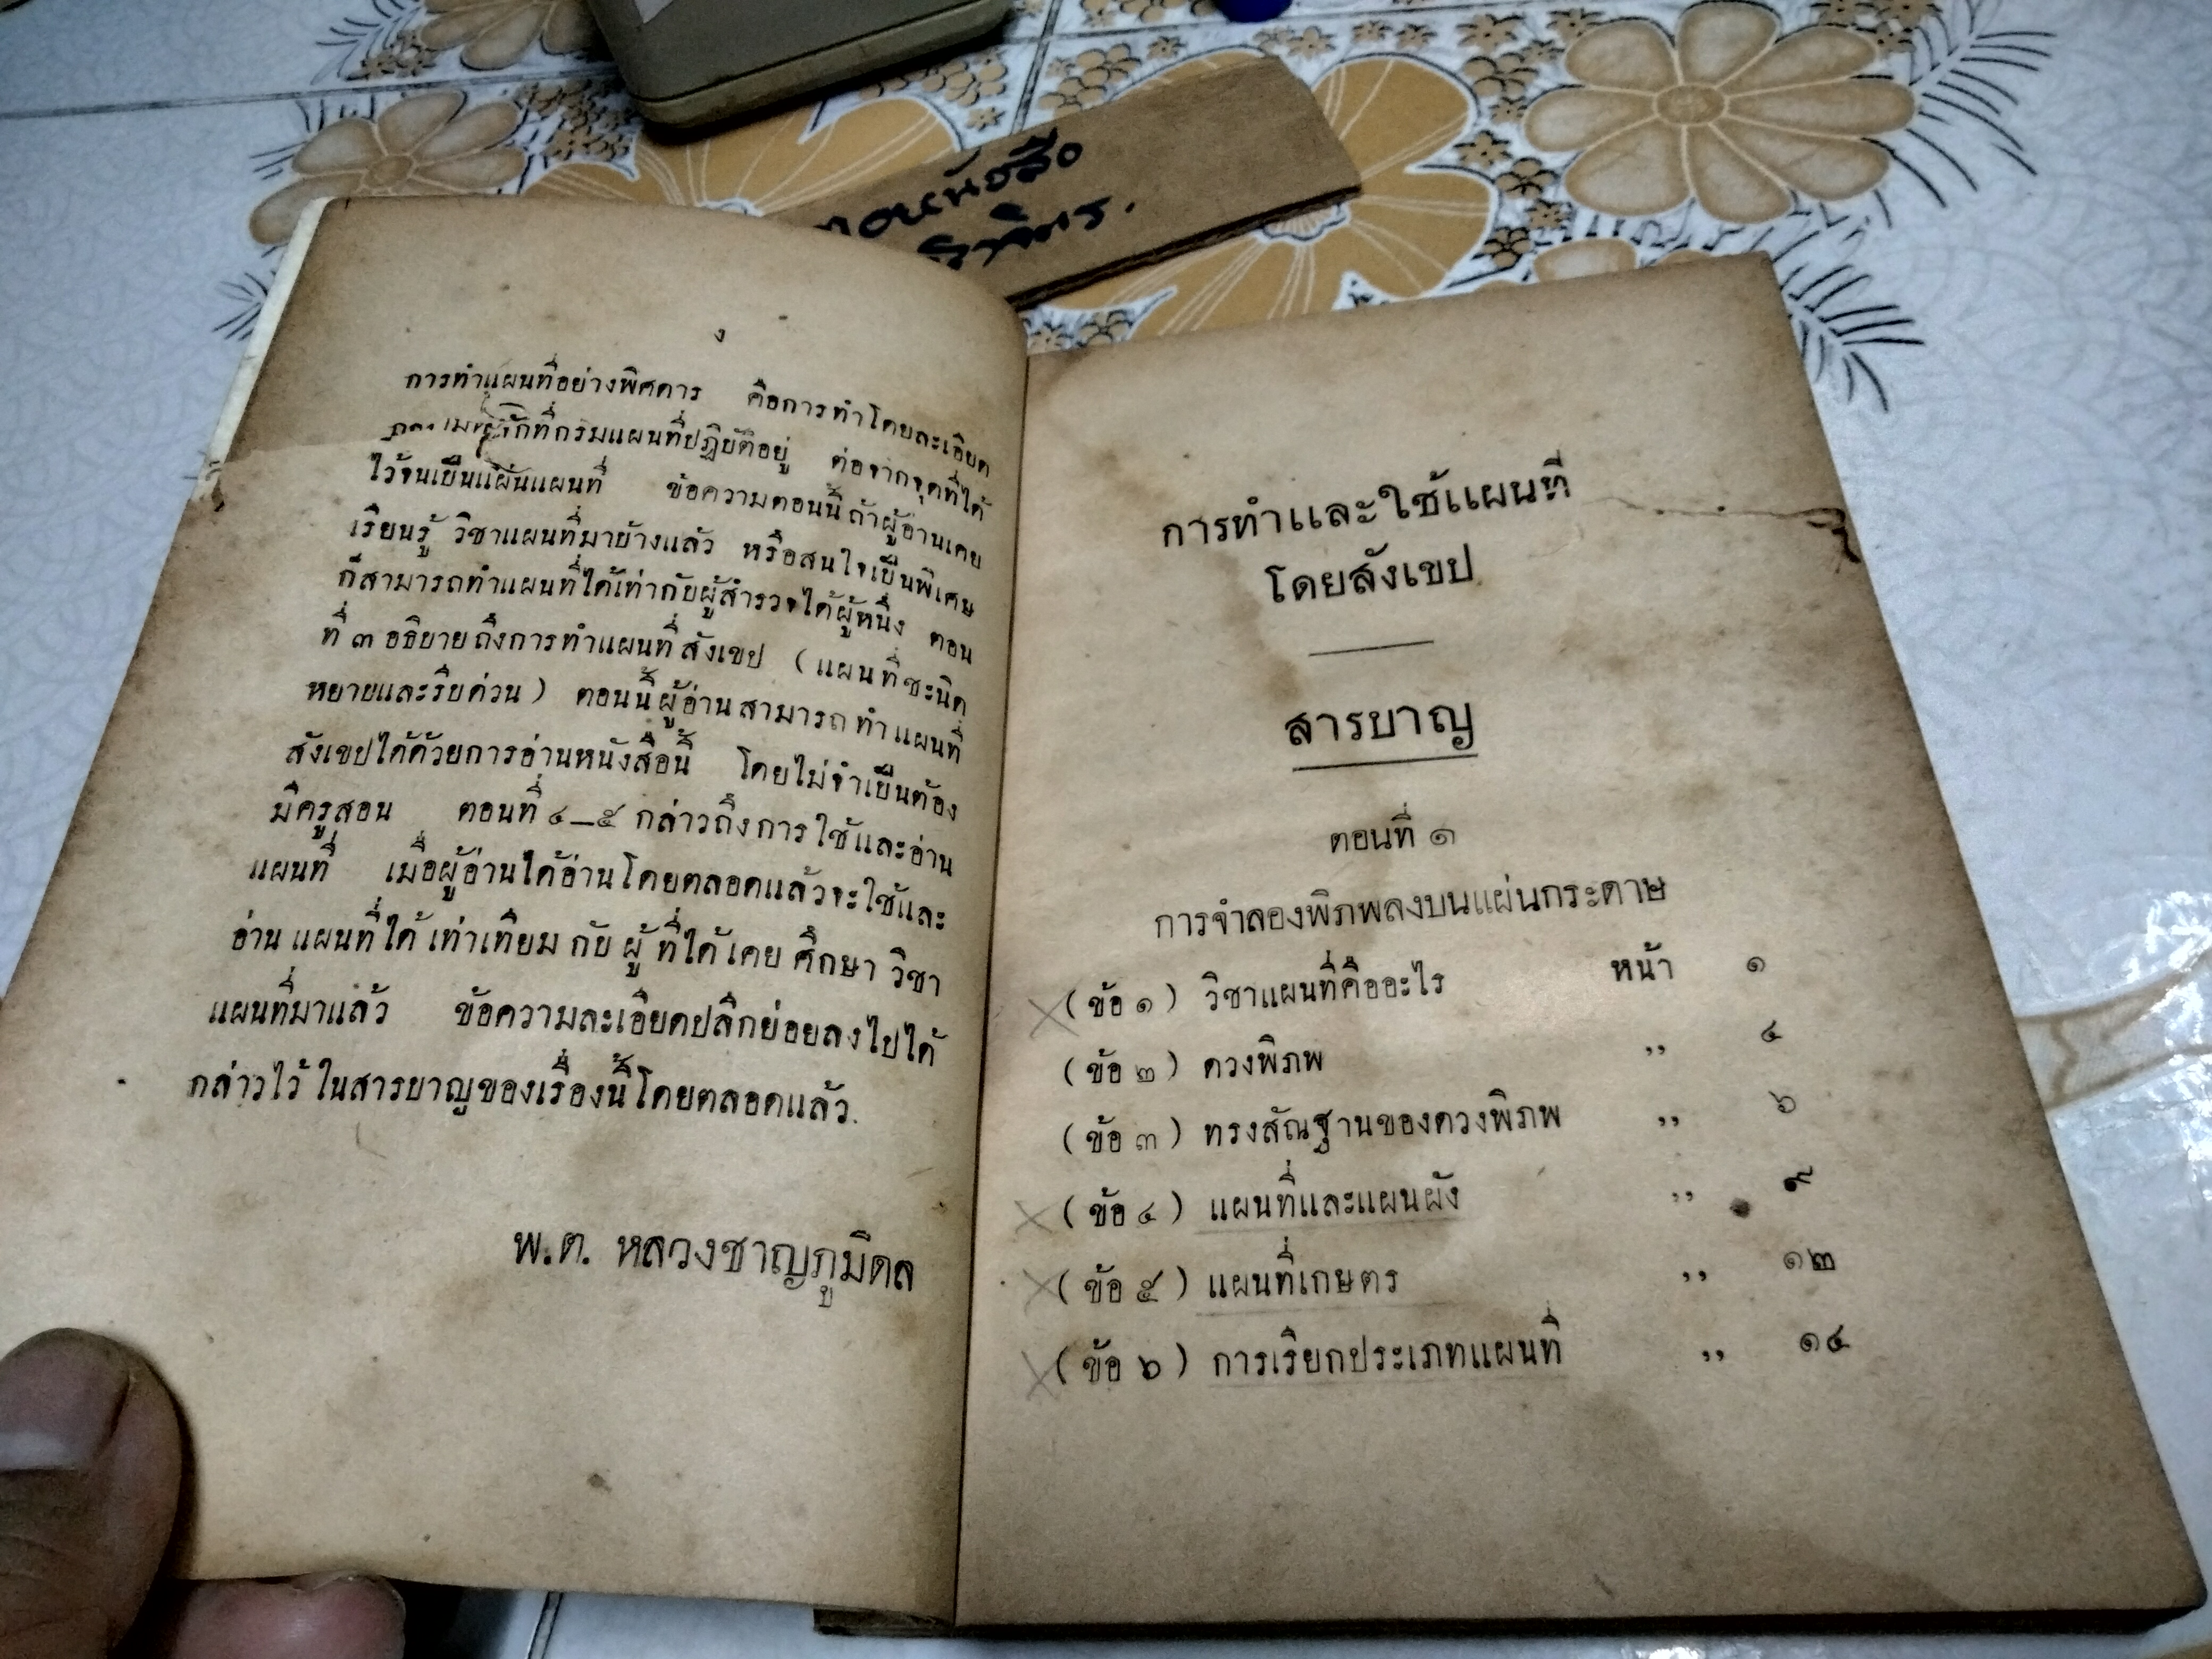 ง
การทำแผนที่อย่างพิศดาร คือการทำโดยละเอียด
ที่กรมแผนที่ปฏิบัติอยู่ ต่อจากจุดที่ได้
ไว้จนเป็นแผ่นแผนที่ ข้อความตอนนี้ถ้าผู้อ่านเคย
เรียนรู้ วิชาแผนที่มาบ้างแล้ว หรือสนใจเป็นพิเศษ
ก็สามารถทำแผนที่ได้เท่ากับผู้สำรวจได้ผู้หนึ่ง ตอน
ที่ ๓ อธิบายถึงการทำแผนที่สังเขป (แผนที่ชะนิด
หยาบและรีบด่วน) ตอนนี้ผู้อ่านสามารถทำแผนที่
สังเขปได้ด้วยการอ่านหนังสือนี้ โดยไม่จำเป็นต้อง
มีครูสอน ตอนที่ ๔—๕ กล่าวถึงการใช้และอ่าน
แผนที่ เมื่อผู้อ่านได้อ่านโดยตลอดแล้วจะใช้และ
อ่านแผนที่ได้เท่าเทียมกับผู้ที่ได้เคยศึกษาวิชา
แผนที่มาแล้ว ข้อความละเอียดปลีกย่อยลงไปได้
กล่าวไว้ในสารบาญของเรื่องนี้โดยตลอดแล้ว.
พ.ต. หลวงชาญภูมิดล
การทำและใช้แผนที่
โดยสังเขป
สารบาญ
ตอนที่ ๑
การจำลองพิภพลงบนแผ่นกระดาษ
(ข้อ ๑) วิชาแผนที่คืออะไร หน้า ๑
(ข้อ ๒) ดวงพิภพ ,, ๔
(ข้อ ๓) ทรงสัณฐานของดวงพิภพ ,, ๖
(ข้อ ๔) แผนที่และแผนผัง ,, ๙
(ข้อ ๕) แผนที่เกษตร ,, ๑๒
(ข้อ ๖) การเรียกประเภทแผนที่ ,, ๑๔